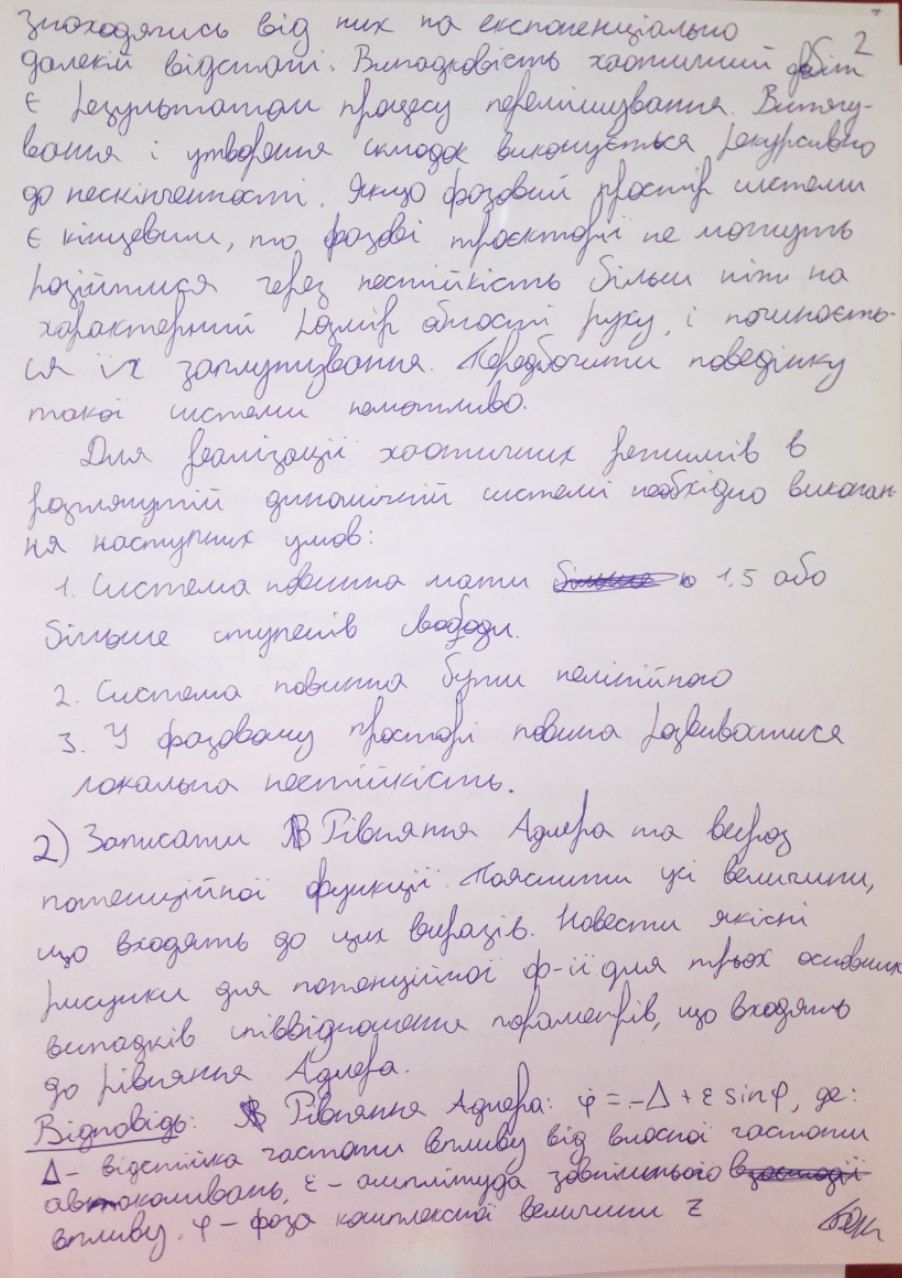 знаходячись від них на експоненціально
2
далекій відстані. Випадковість хаотичний
є результатом процесу перемішування. Витягу-
вання і утворення складок виконується рекурсивно
до нескінченності. Якщо фазовий простір системи
є кінцевим, то фазові траєкторії не можуть
розійтися через нестійкість більш ніж на
характерний розмір області руху, і починаєть-
ся їх заплутування. Передбачити поведінку
такої системи неможливо.
Для реалізації хаотичних режимів в
розглянутій динамічній системі необхідно виконан-
ня наступних умов:
1. Система повинна мати 1,5 або
більше ступенів свободи.
2. Система повинна бути нелінійною
3. У фазовому просторі повина розвиватися
локальна нестійкість.
2) Записати Рівняння Адлера та вираз
потенційної функції. Пояснити усі величини,
що входять до цих виразів. Навести якісні
рисунки для потенційної ф-ії для трьох основних
випадків співвідношення параметрів, що входять
до рівняння Адлера.
Відповідь: Рівняння Адлера: φ̇ = -Δ + ε sin φ, де:
Δ - відстійка частоти впливу від власної частоти
автоколивань, ε - амплітуда зовнішнього
впливу, φ - фаза комплексної величини z